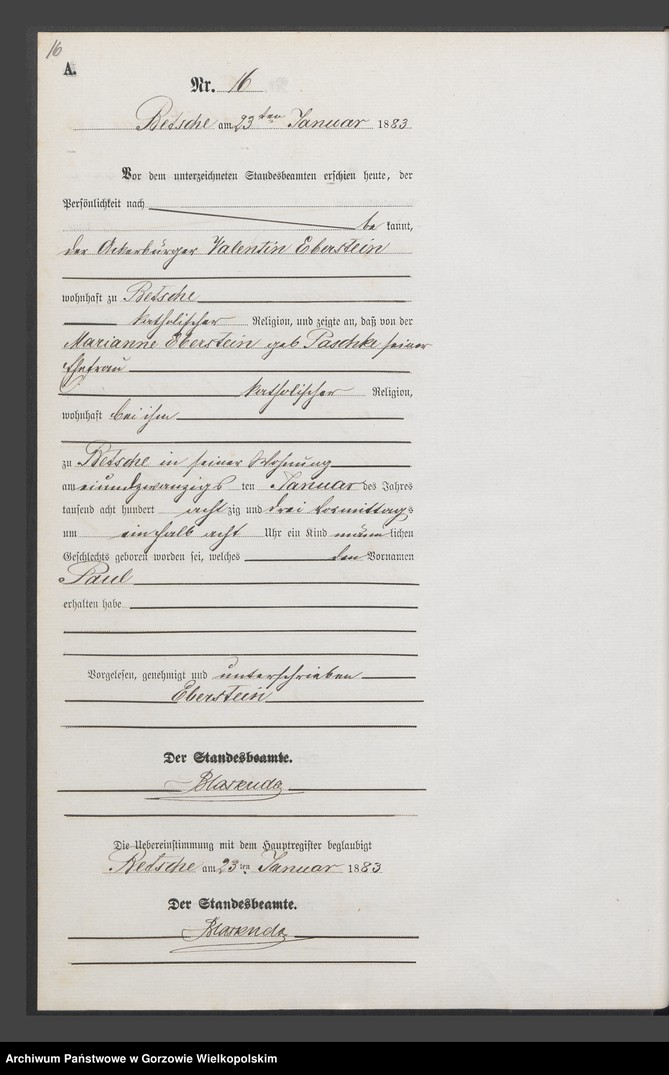 16
A.
Nr. 16
Betsche am 23ten Januar 1883
Vor dem unterzeichneten Standesbeamten erschien heute, der
Persönlichkeit nach
be kannt,
der Ackerbürger Valentin Eberstein
wohnhaft zu Betsche
katholischer Religion, und zeigte an, daß von der
Marianne Eberstein geb Paschke seiner
Ehefrau
katholischer Religion,
wohnhaft bei ihm
zu Betsche in seiner Wohnung
am einundzwanzigs ten Januar des Jahres
tausend acht hundert acht zig und drei Vormittags
um ein halb acht Uhr ein Kind männ lichen
Geschlechts geboren worden sei, welches den Vornamen
Paul
erhalten habe
Vorgelesen, genehmigt und unterschrieben
Eberstein
Der Standesbeamte.
Die Uebereinstimmung mit dem Hauptregister beglaubigt
Betsche am 23ten Januar 1883
Der Standesbeamte.
Archiwum Państwowe w Gorzowie Wielkopolskim